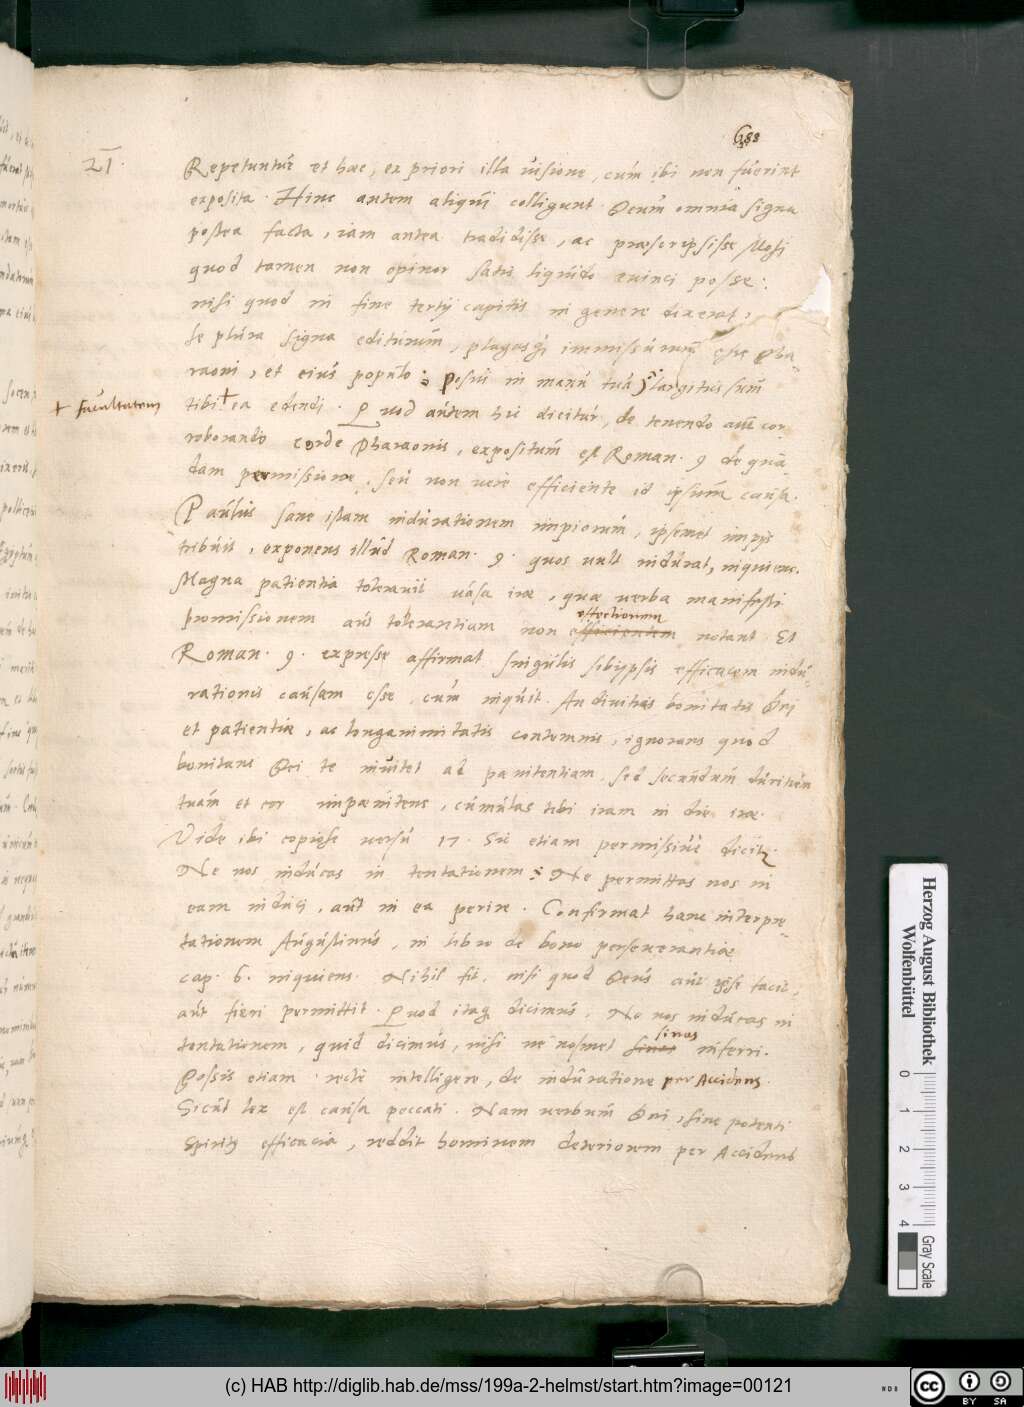 688
21.
Repetuntur et hæc, ex priori illa visione, cúm ibi non fúerint
exposita. Hinc autem aliqui colligunt. Deum omnia signa
postea facta, iam antea tradidisse, ac præscripsisse Mosi
quod tamen non opinor satis liquido evinci posse:
nisi quod in fine tertij capitis in genere dixerat,
se plúra signa editúrúm, plagasq immissúrum esse Pha-
raoni, et eiús populo: Posui in manú tuá largitús súm
tibi + ea edendi. Quod aútem hic dicitúr, de tenendo aut cor-
+ facúltatem
roborando corde Pharaonis, expositúm est Roman. 9 de quá-
dam permissione, seú non vere efficiente id ipsúm caúsa.
Paúlús sane istam indúrationem impiorúm, ipsemet impijs
tribúit, exponens illúd Roman. 9. quos vult indúrat, inquiens.
Magna patientia toleravit vása iræ, quæ verba manifesti
promissionem aút tolerantiam non efficientem notant. Et
effectionem
Roman. 9. expresse affirmat singúlis sibijpsis efficacem indú-
rationis caúsam esse, cúm inqúit. An divitias bonitatis Dei
et patientiæ, ac longanimitatis contemnis, ignorans quod
bonitans Dei te invitet ad pænitentiam, sed secúndúm dúritiém
túám et cor impænitens, cúmúlas tibi iram in die iræ.
Vide ibi copiose versú 17. Sic etiam permissivè dicitr.
Ne nos indúcas in tentationem: Ne permittas nos in
eam indúci, aút in ea perire. Confirmat hanc interpre-
tationem Aúgústinús, in libro de bono perseverantiæ
cap. 6. inquiens. Nihil fit, nisi quod Deús aút ipse facit,
aút fieri permittit. Quod itaq dicimús, Ne nos indúcas in
tentationem, quid dicimús, nisi ne nosmet sinas inferri.
sinas
Possis etiam rectè intelligere, de indúratione per Accidens.
Sicút lex est caúsa peccati. Nam verbúm Dei, sine potenti
Spiritq efficacia, reddit hominem deteriorem per Accidens
Herzog August Bibliothek
Wolfenbüttel
0 1 2 3 4
Gray Scale
(c) HAB http://diglib.hab.de/mss/199a-2-helmst/start.htm?image=00121
cc BY SA